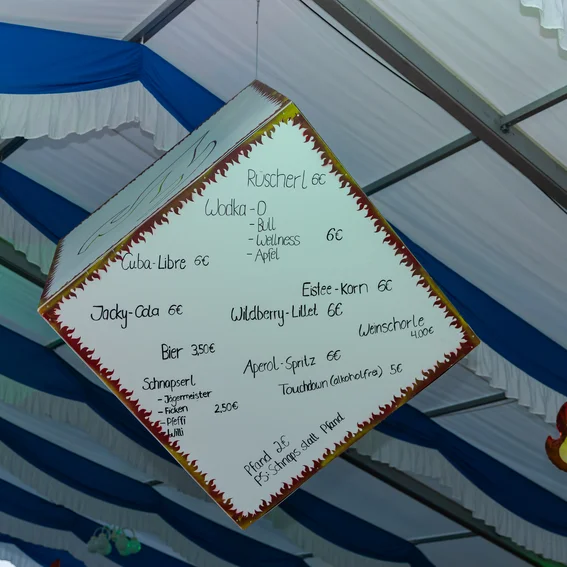 Rüscherl 6€
Wodka-O
- Bull
- Wellness 6€
- Apfel
Cuba-Libre 6€
Eistee-Korn 6€
Jacky-Cola 6€
Wildberry-Lillet 6€
Weinschorle
4,00€
Bier 3,50€
Aperol-Spritz 6€
Touchdown (alkoholfrei) 5€
Schnapserl
- Jägermeister
- Ficken 2,50€
- Pfeffi
- Willi
Pfand 2€
PS: Schnaps statt Pfand